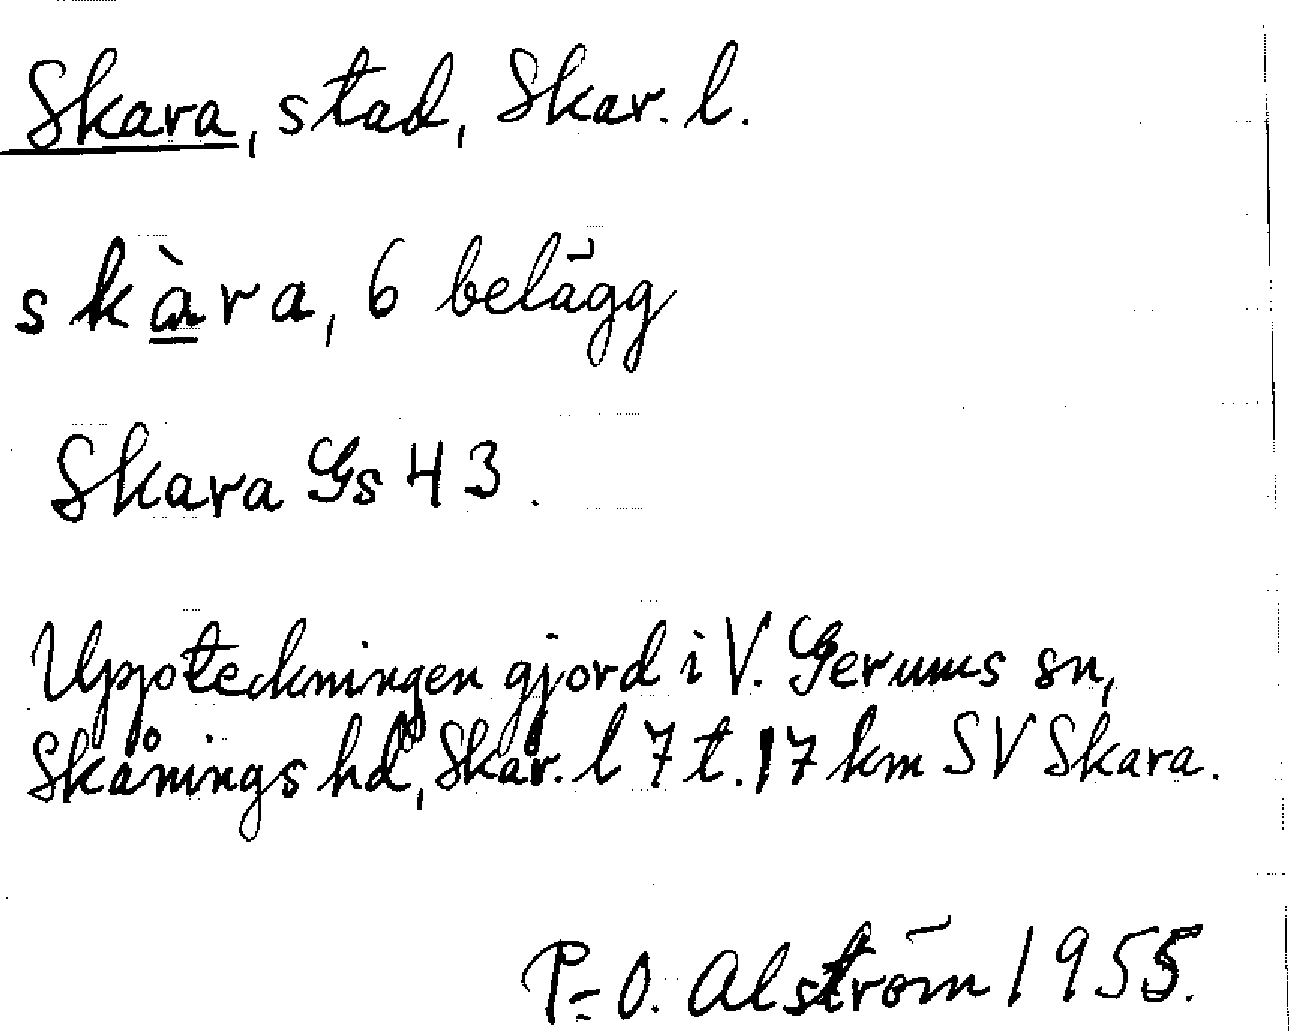 Skara, stad, Skar. l.
skàra, 6 belägg
Skara Gs 43.
Uppteckningen gjord i V. Gerums sn,
Skånings hd, Skar. l 7 t. 17 km SV Skara.
P-O. Alström 1955.